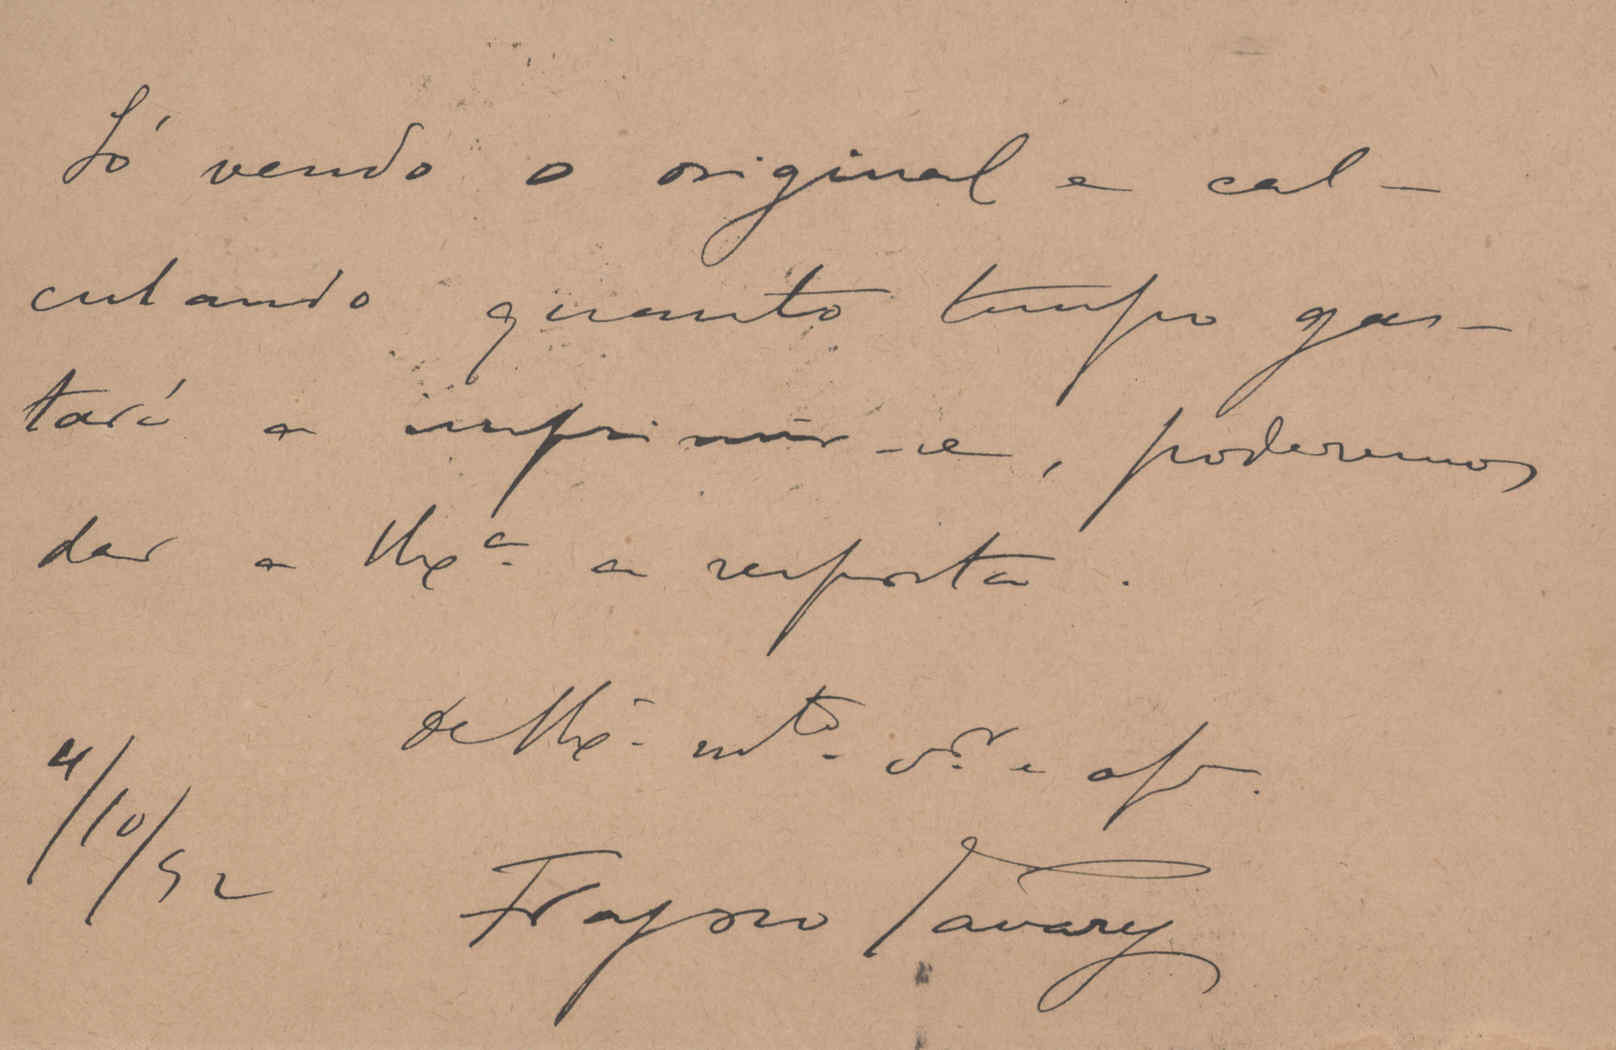 Só vendo o original e cal-
culando quanto tempo gas-
tará a imprimir-se, poderemos
dar a V. Exª a resposta.
de V. Exª mtº. vor. e
4/10/92
Tavares